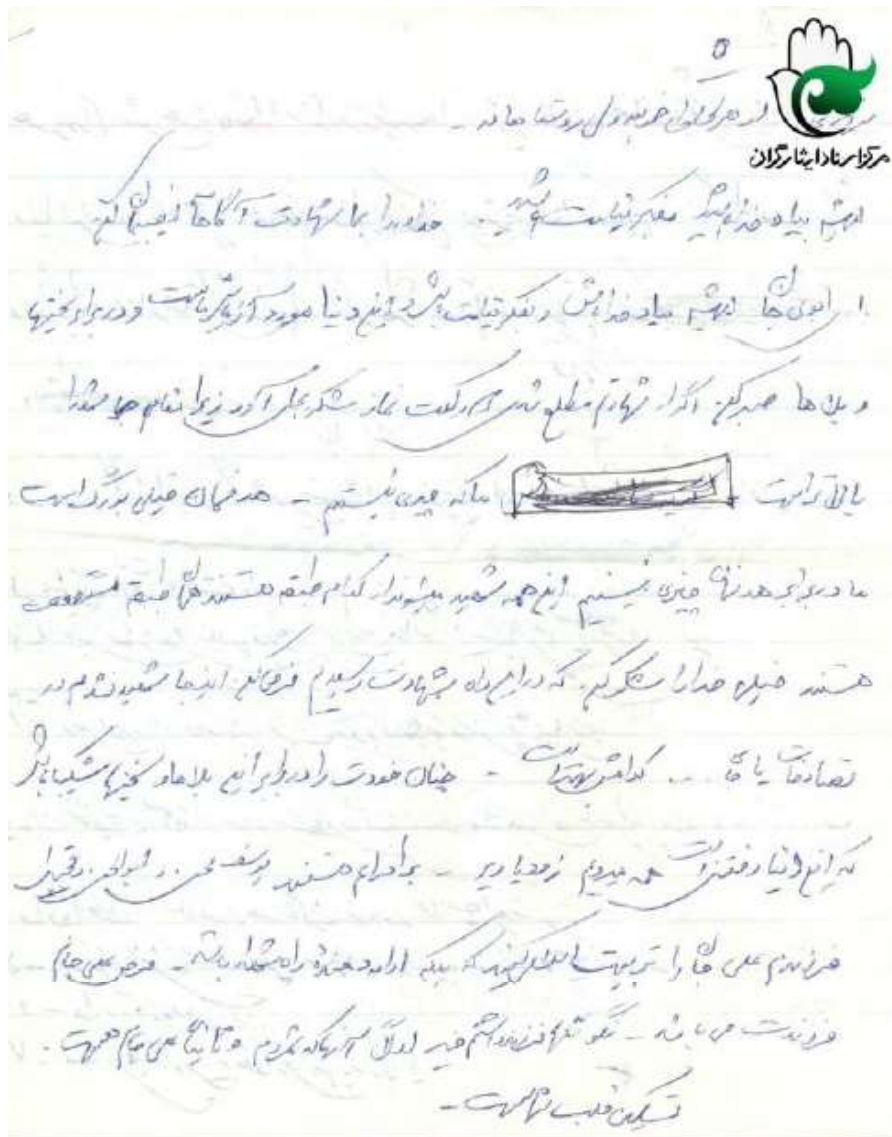 ۵
مرکز اسناد ایثارگران
از هر کجا
همیشه بیاد خدا باشید بفکر قیامت باشید - خداوندا ما را شهادت آگاهانه نصیبمان کن
همیشه بیاد خدا باش و بفکر قیامت باش و این دنیا مورد آزمایش ماست و در برابر سختیها
و بلاها صبر کن. اگر از شهادتم مطلع شدی رکعت نماز شکر بجای آور زیرا مقام شهدا
بالاتر است ما که چیزی نیستیم - هدفمان خیلی بزرگ است
ما در برابر هدفمان چیزی نیستیم این همه شهید میشوند از کدام طبقه هستند همان طبقه مستضعف
هستند خیلی خدا را شکر کنم که در این راه بشهادت رسیدم فرض کنم اینجا شهید نشدم در
تصادفات یا ... کدامش بهتر است - چنان خودت را در برابر این بلاها و سختیها شکیبا باش
که این دنیا رفتنی است همه میرویم زود یا دیر - برادرانم هستند یوسف
فرزندم علی جان را تربیت اسلامی کنید که بلکه ادامه دهنده راه شهدا باشد - فرض علی جانم
فرزندت می باشد - نگو تنها فرزند داشتم خیر اولاً آنها که نمردم و ثانیاً علی جانم هست.
تسکین قلب شماست -